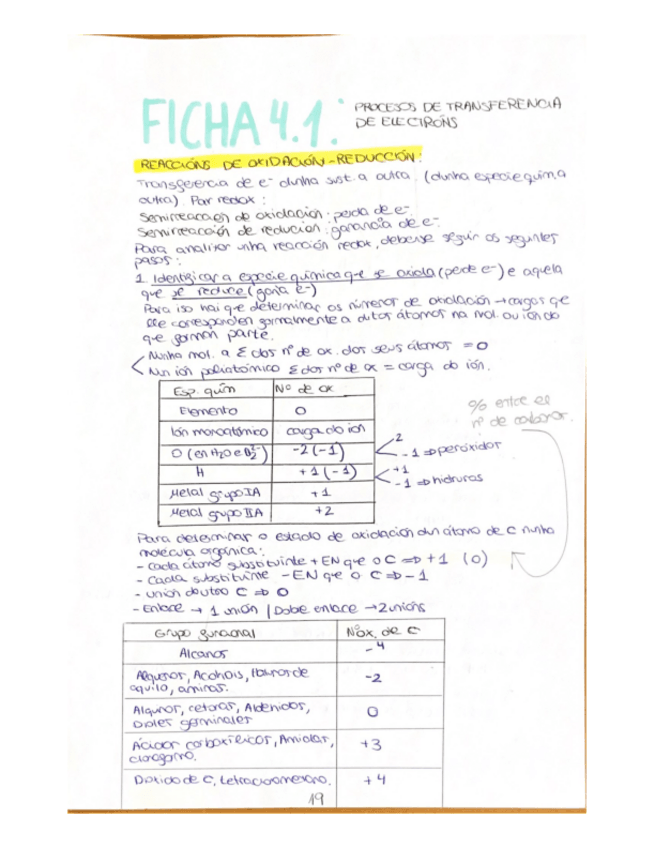 FICHA 4.1.:
PROCESOS DE TRANSFERENCIA
DE ELECTRÓNS
REACCIÓNS DE OXIDACIÓN-REDUCCIÓN:
Transferencia de e⁻ dunha sust. a outra. (dunha especie quím. a
outra). Par redox:
Semirreacción de oxidación: perda de e⁻.
Semirreación de redución: ganancia de e⁻.
Para analizar unha reacción redox, débese seguir os seguintes
pasos:
1. Identificar a especie química q-e se oxida (perde e⁻) e aquela
que se reduce (gaña e⁻)
Para iso hai que determinar os números de oxidación → cargas que
lle corresponden formalmente a ditos átomos na mol. ou ión do
que forman parte.
Nunha mol. a Σ dos nº de ox. dos seus átomos = 0
Nun ión poliatómico Σ dos nº de ox = carga do ión.
Esp. quím Nº de ox
Elemento 0
Ión monoatómico carga do ión
O (en H₂O e O₂²⁻) -2 (-1)
2
-1 ⇒ peróxidos
H +1 (-1)
+1
-1 ⇒ hidruros
Metal grupo IA +1
Metal grupo IIA +2
% entre el
nº de carbonos.
Para determinar o estado de oxidación dun átomo de C nunha
molécula orgánica:
- Cada átomo substituinte + EN que o C ⇒ +1 (0)
- Cada substituinte - EN que o C ⇒ -1
- unión doutro C ⇒ 0
- Enlace → 1 unión | Dobe enlace → 2 unións
Grupo funcional Nºox. de C
Alcanos -4
Alquenos, Acohois, de
aquilo, aminas. -2
Alquinos, cetonas, Aldehidos,
Dioles geminales 0
Ácidos carboxílicos, Amidas,
+3
Dióxido de C, +4
19